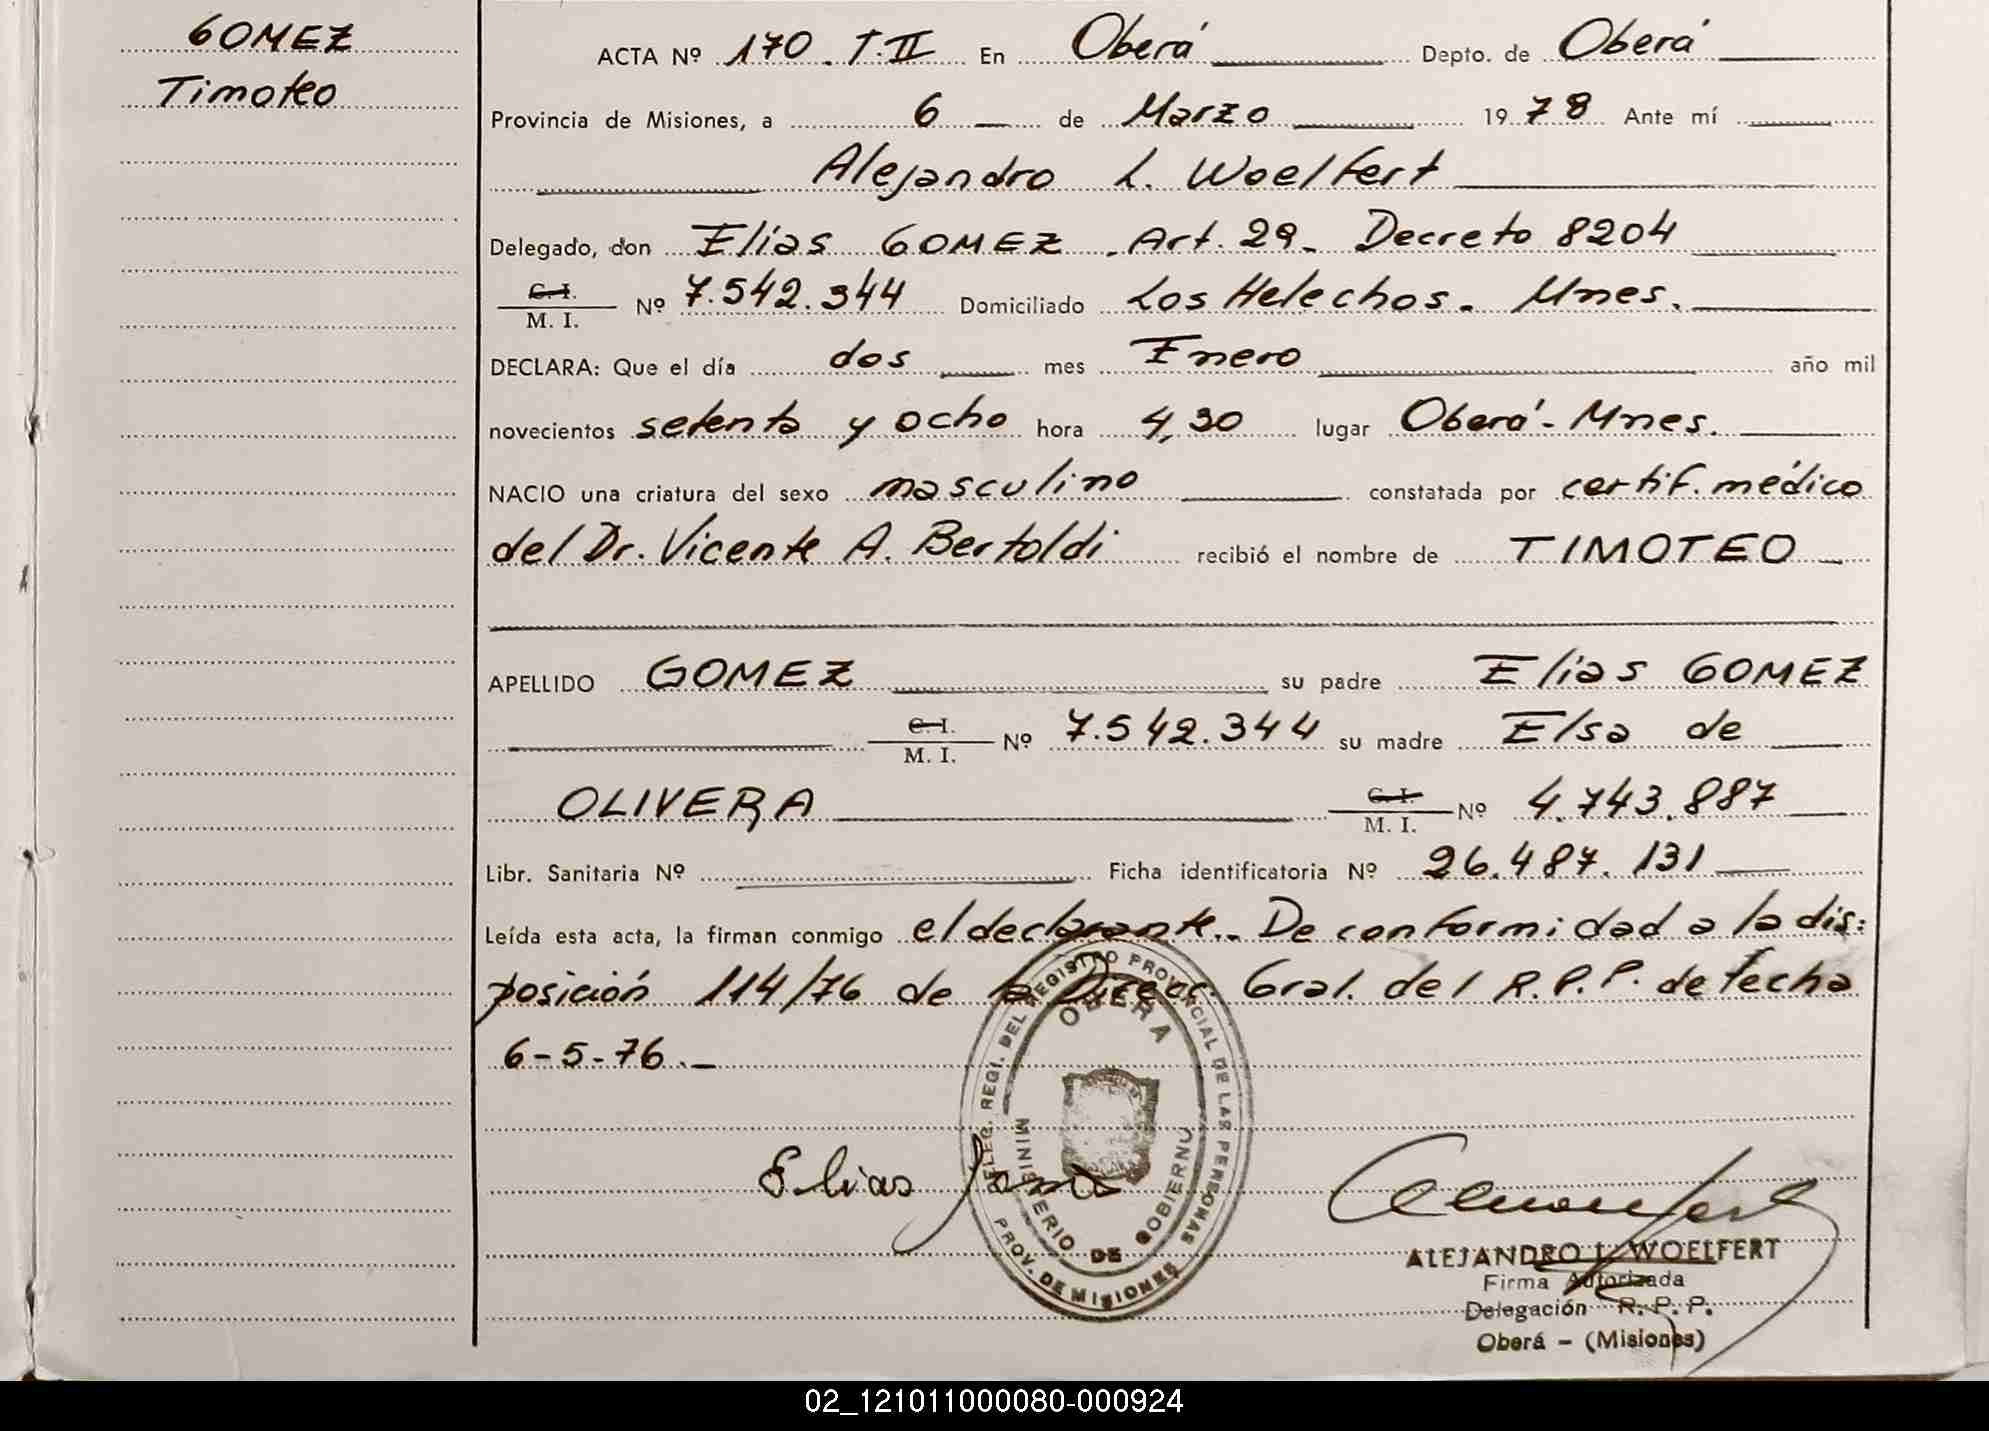 GOMEZ
Timoteo
ACTA Nº 170. T. II En Oberá Depto. de Oberá
Provincia de Misiones, a 6 de Marzo 1978 Ante mí
Alejandro L. Woelfert
Delegado, don Elias GOMEZ. Art. 29. Decreto 8204
C. I.
M. I. Nº 7.542.344 Domiciliado Los Helechos. Mnes.
DECLARA: Que el día dos mes Enero año mil
novecientos setenta y ocho hora 4,30 lugar Oberá - Mnes.
NACIO una criatura del sexo masculino constatada por certif. médico
del Dr. Vicente A. Bertoldi recibió el nombre de TIMOTEO
APELLIDO GOMEZ su padre Elias GOMEZ
C. I.
M. I. Nº 7.542.344 su madre Elsa de
OLIVERA C. I.
M. I. Nº 4.743.887
Libr. Sanitaria Nº Ficha identificatoria Nº 26.487.131
Leída esta acta, la firman conmigo el declarante. De conformidad a la dis:
posición 114/76 de la Direcc. Gral. del R. P. P. de fecha
6-5-76.
DELEG. REGI. DEL REGISTRO PROVINCIAL DE LAS PERSONAS
OBERA
MINISTERIO DE GOBIERNO
PROV. DE MISIONES
Elias
ALEJANDRO L. WOELFERT
Firma Autorizada
Delegación R. P. P.
Oberá - (Misiones)
02_121011000080-000924